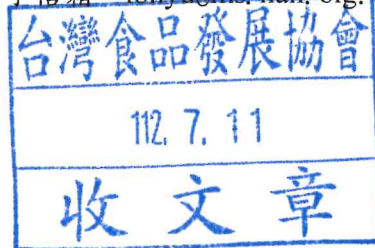 台灣食品發展協會
112. 7. 11
收文章